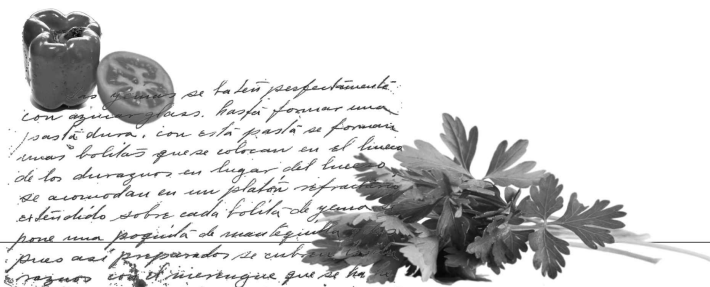 se baten perfectamente
con azucar glass. hasta formar una
pasta dura, con esta pasta se forman
unas bolitas que se colocan en el hueco
de los duraznos en lugar del hueso,
se acomodan en un platón refractario
extendido sobre cada bolita de yema
pone una poquita de mantequilla
pues asi preparados se cubren
raznos con el merengue que se ha